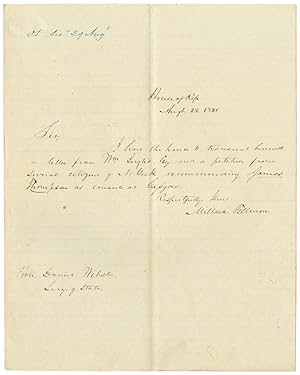 House of Rep
Augt. 28, 1841
Sir,
I have the honor to transmit herewith
a letter from Wm Esq and a petition from
several citizens of N. York recommending James
Thompson as consul at Glasgow.
Respectfully Yours
Millard Fillmore
Hon. Daniel Webster
Secy. of State.